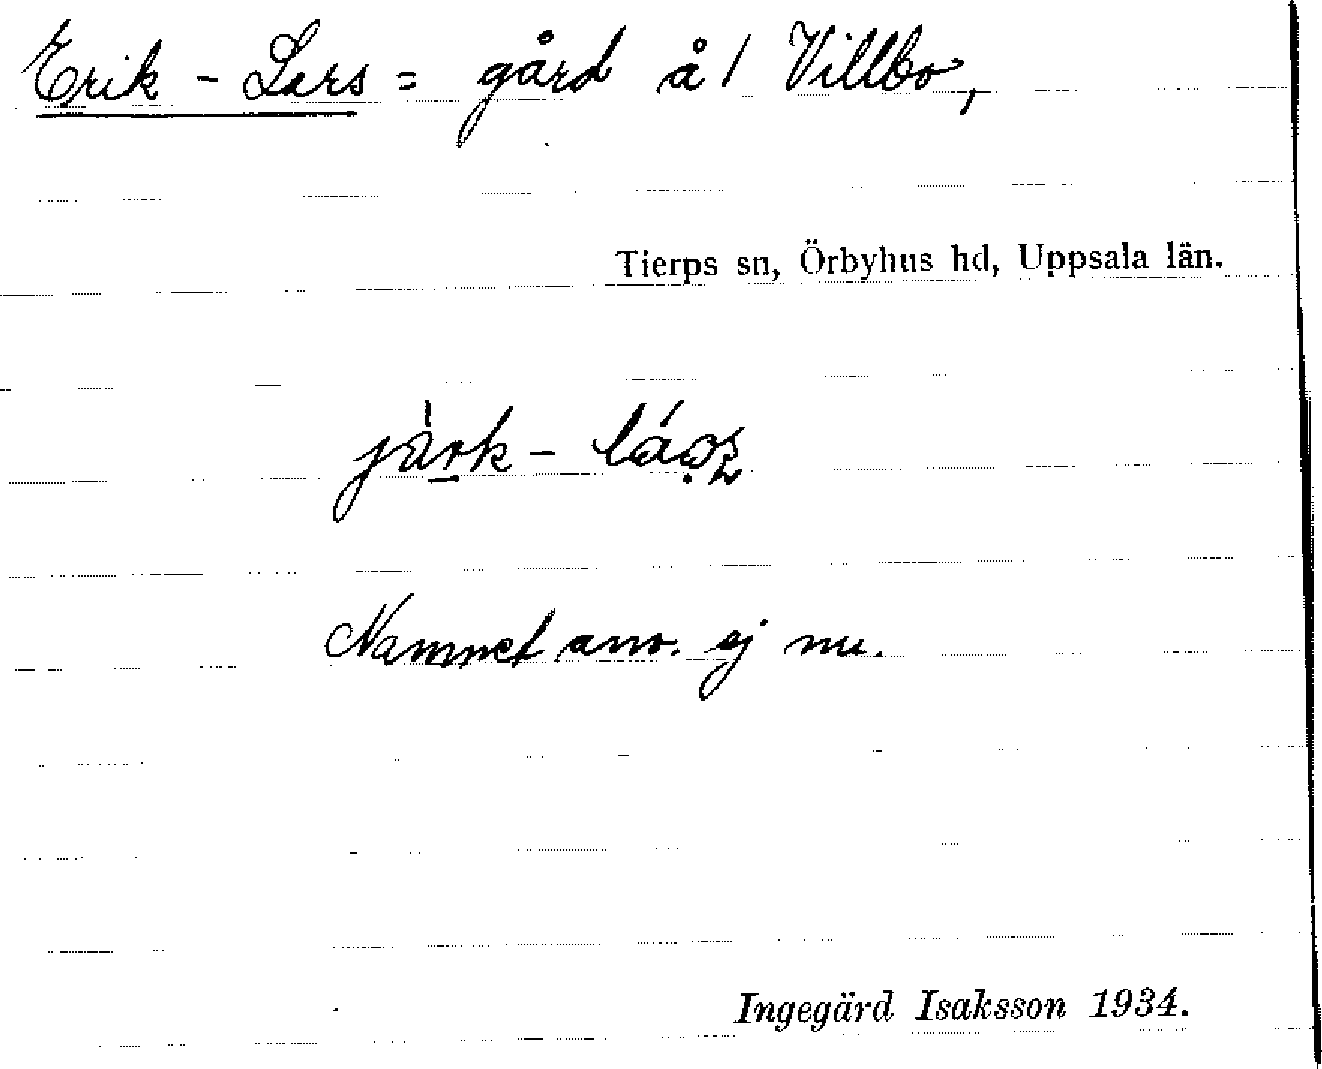 Erik - Lars = gård å / Villbo,
Tierps sn, Örbyhus hd, Uppsala län.
Namnet anv. ej nu.
Ingegärd Isaksson 1934.